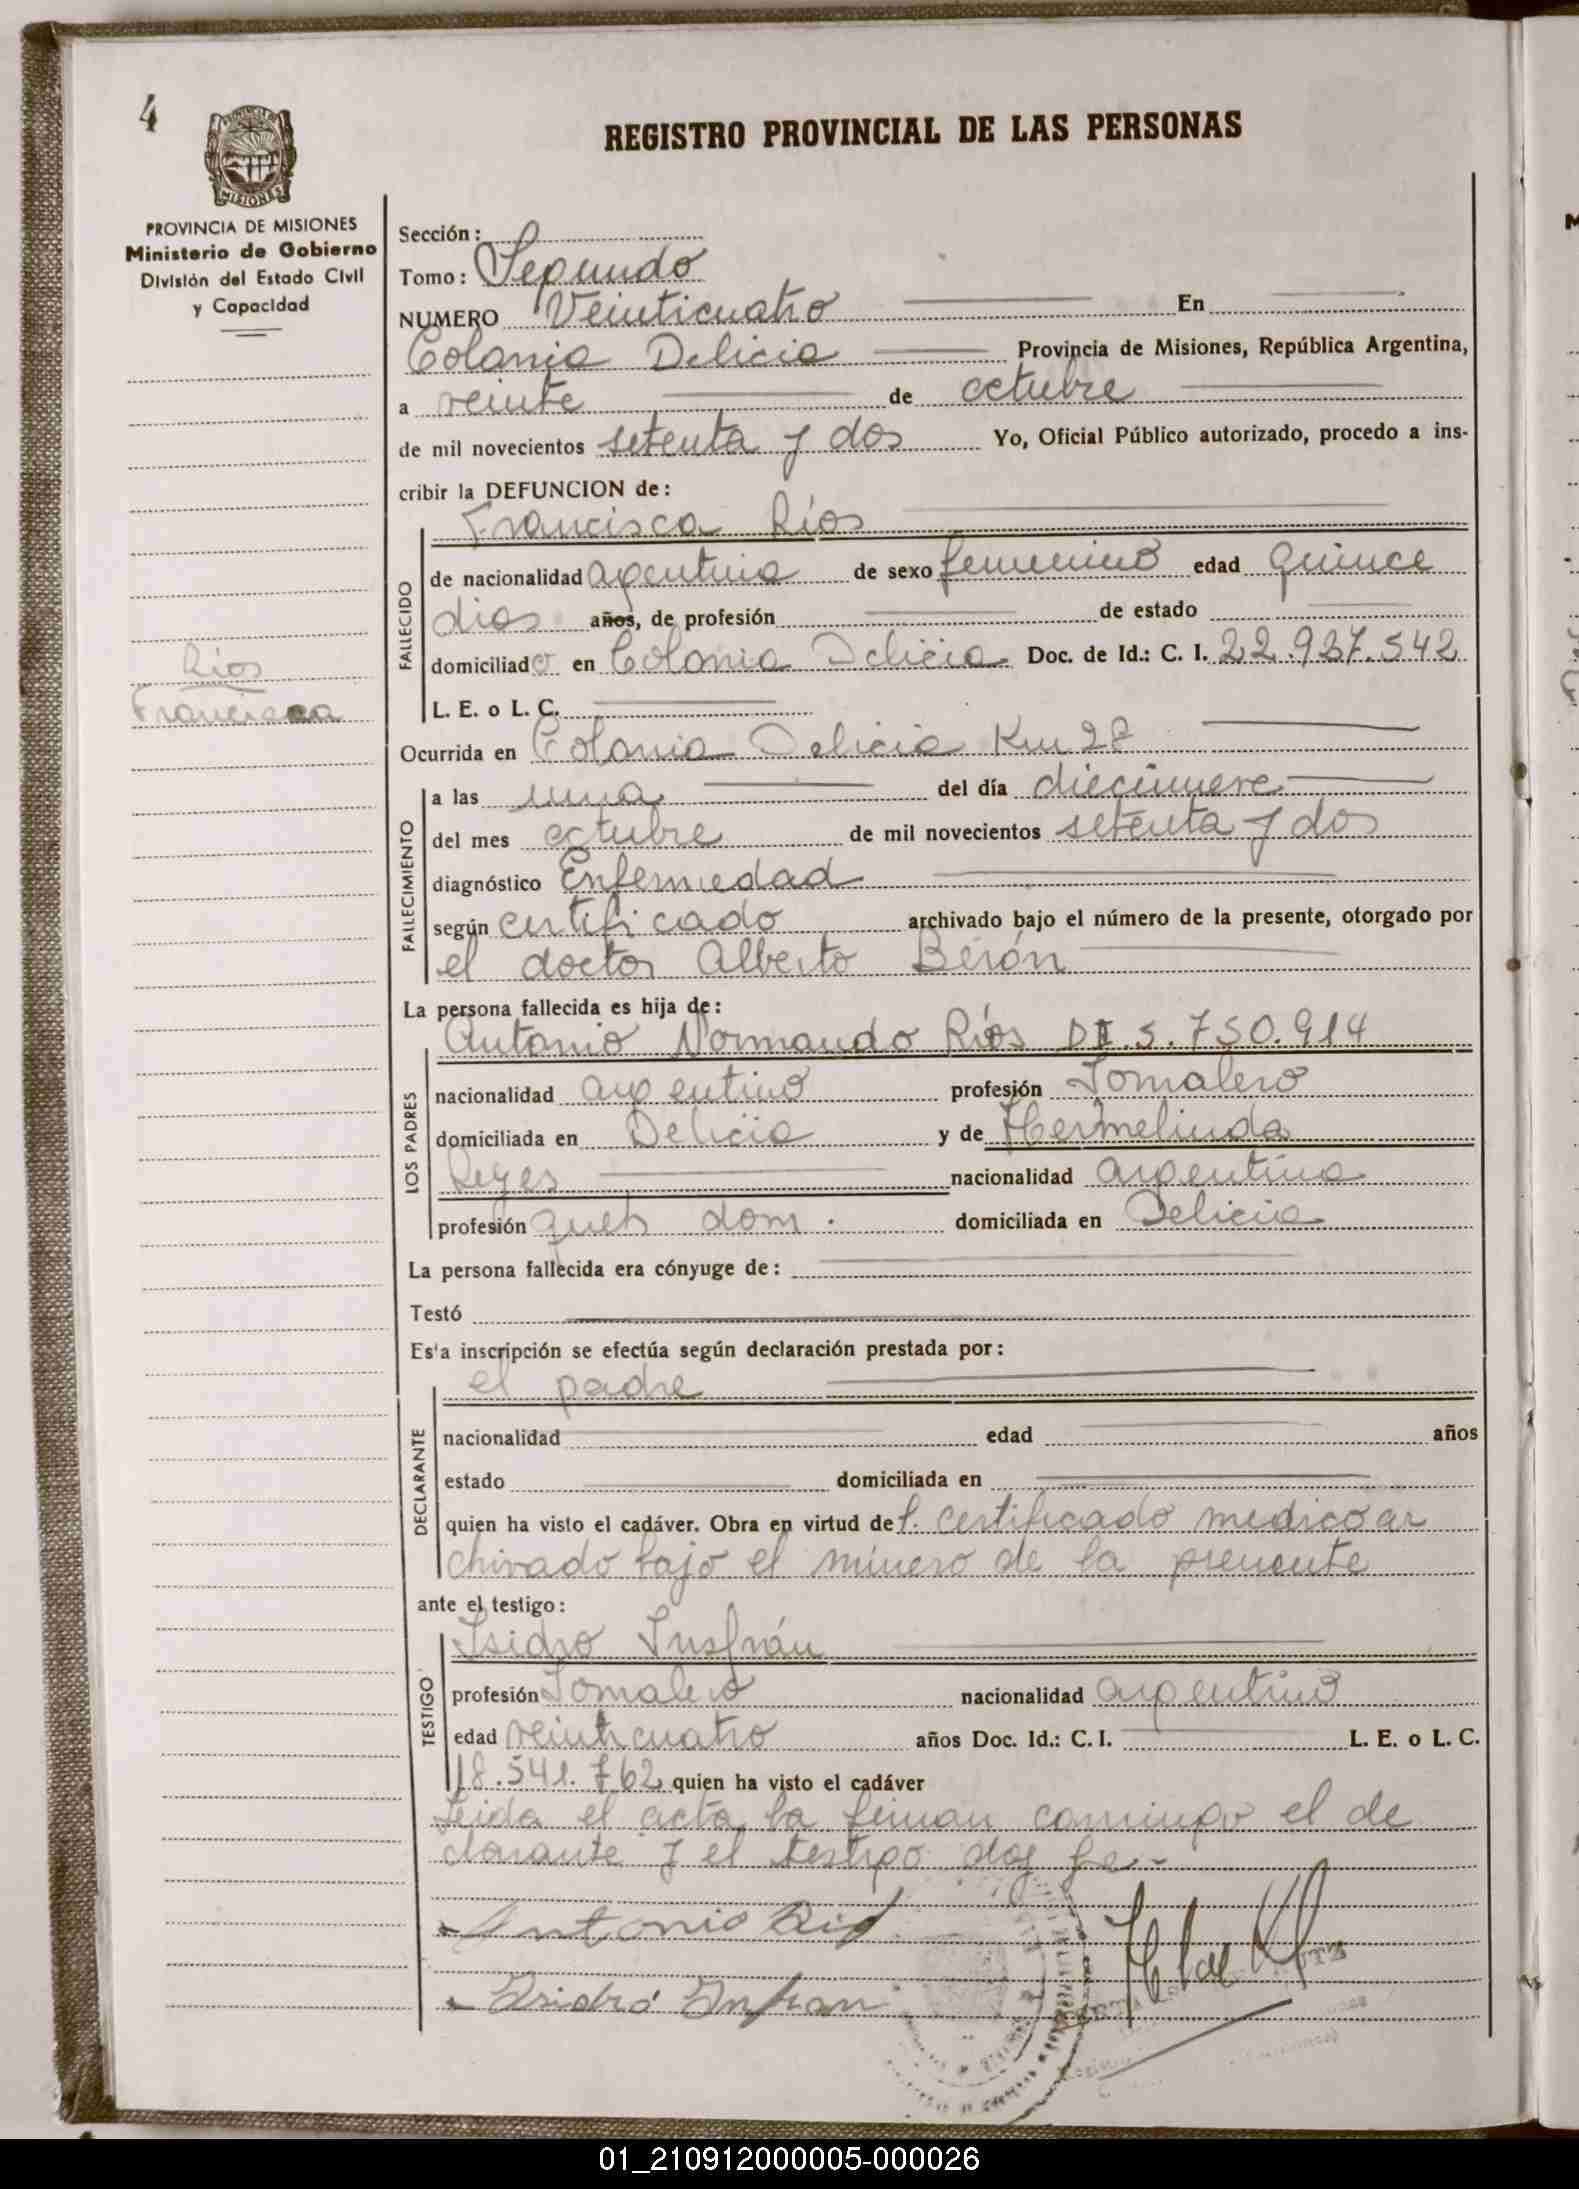 4
REGISTRO PROVINCIAL DE LAS PERSONAS
MISIONES
PROVINCIA DE MISIONES
Ministerio de Gobierno
División del Estado Civil
y Capacidad
Ríos
Francisca
Sección:
Tomo: Segundo
NUMERO Veinticuatro En
Colonia Delicia Provincia de Misiones, República Argentina,
a veinte de octubre
de mil novecientos setenta y dos Yo, Oficial Público autorizado, procedo a ins-
cribir la DEFUNCION de:
Francisca Ríos
FALLECIDO
de nacionalidad argentina de sexo femenino edad quince
dias años, de profesión de estado
domiciliado en Colonia Delicia Doc. de Id.: C. I. 22.927.542
L. E. o L. C.
Ocurrida en Colonia Delicia Km 28
FALLECIMIENTO
a las una del día diecinueve
del mes octubre de mil novecientos setenta y dos
diagnóstico Enfermedad
según certificado archivado bajo el número de la presente, otorgado por
el doctor Alberto Berón
La persona fallecida es hija de:
LOS PADRES
Antonio Normando Ríos DI 5.750.914
nacionalidad argentino profesión Jornalero
domiciliada en Delicia y de Hermelinda
Reyes nacionalidad argentina
profesión queh dom. domiciliada en Delicia
La persona fallecida era cónyuge de:
Testó
Esta inscripción se efectúa según declaración prestada por:
el padre
DECLARANTE
nacionalidad edad años
estado domiciliada en
quien ha visto el cadáver. Obra en virtud de certificado medico ar
chivado bajo el número de la presente
ante el testigo:
TESTIGO
Isidro Insfrán
profesión Jornalero nacionalidad argentino
edad veinticuatro años Doc. Id.: C. I. L. E. o L. C.
18.541.762 quien ha visto el cadáver
Leida el acta la firman conmigo el de
clarante y el testigo doy fe.-
Antonio Rios
Isidro Insfran
01_210912000005-000026